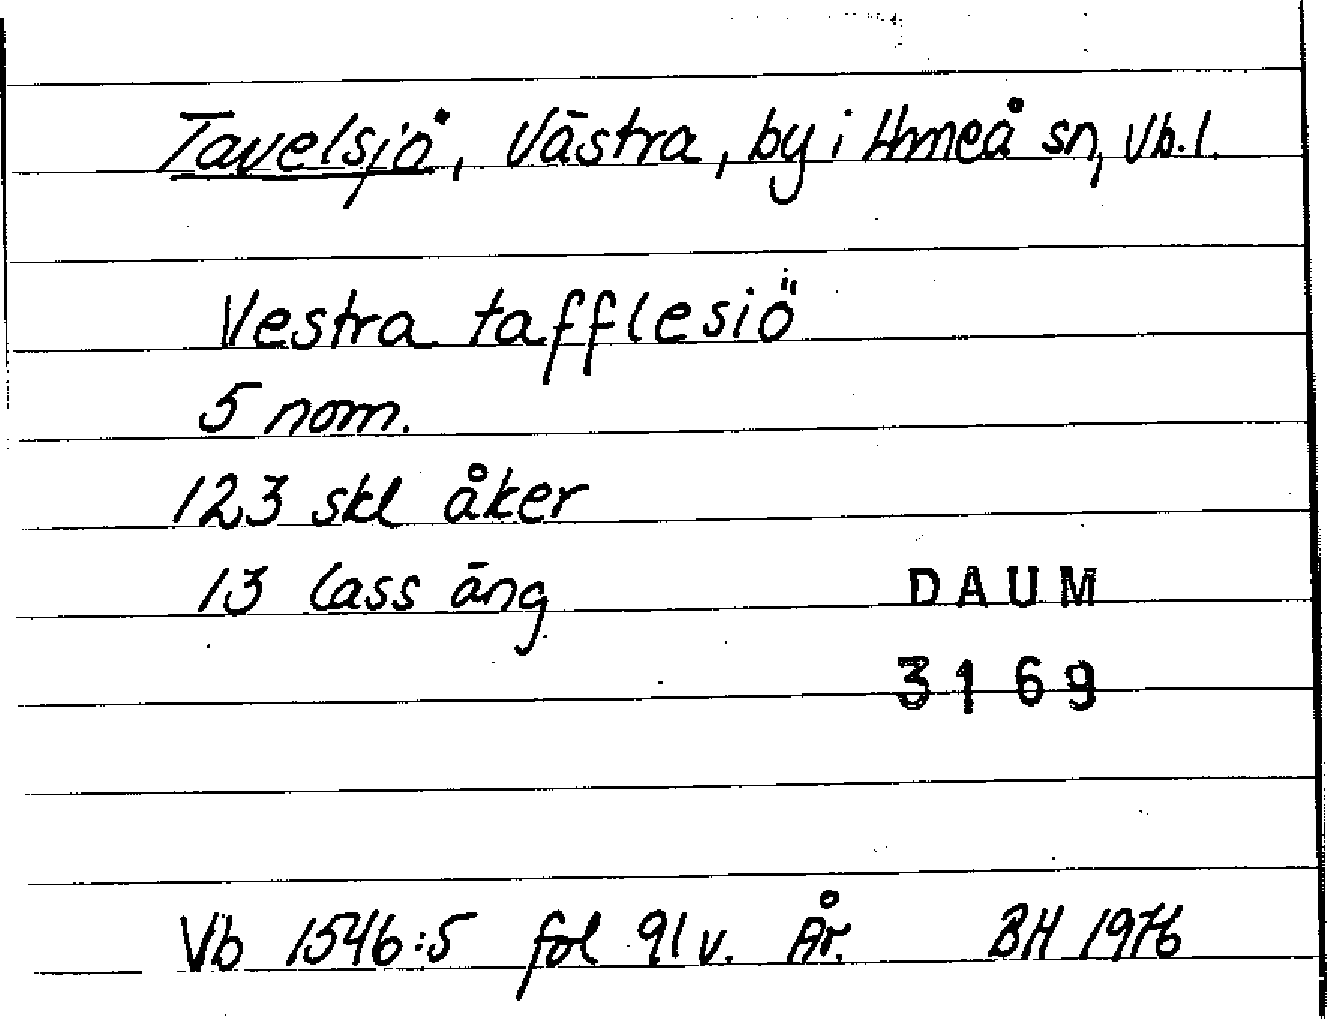 Tavelsjö, Västra, by i Umeå sn, Vb. l.
Vestra tafflesiö
5 nom.
123 skl åker
13 lass äng
DAUM
3169
Vb 1546:5 fol 91 v. År. BH 1976